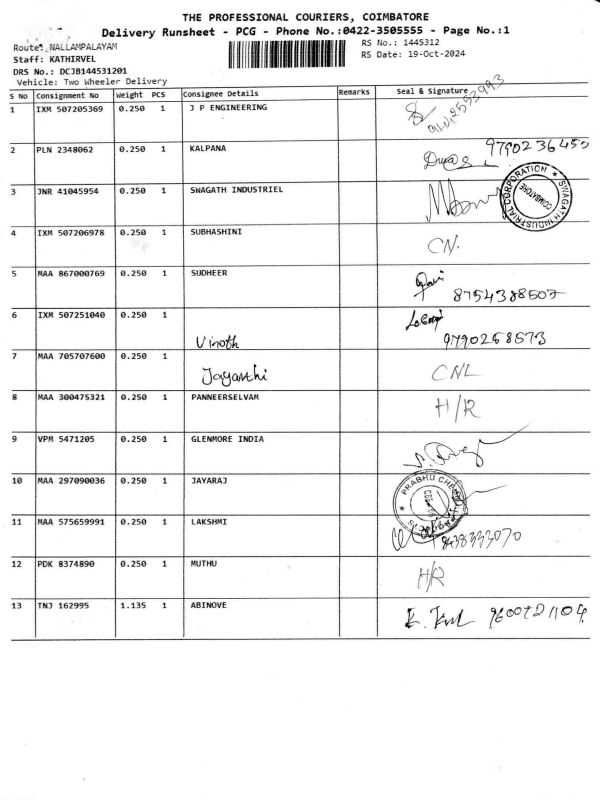 THE PROFESSIONAL COURIERS, COIMBATORE
Delivery Runsheet - PCG - Phone No.:0422-3505555 - Page No.:1
Route: NALLAMPALAYAM
RS No.: 1445312
Staff: KATHIRVEL
RS Date: 19-Oct-2024
DRS No.: DCJB144531201
Vehicle: Two Wheeler Delivery
S No Consignment No Weight PCS Consignee Details Remarks Seal & Signature
1 IXM 507205369 0.250 1 J P ENGINEERING
2 PLN 2348062 0.250 1 KALPANA 9790236450
3 JNR 41045954 0.250 1 SWAGATH INDUSTRIEL
SWAGATH INDUSTRIAL CORPORATION ★ COIMBATORE
4 IXM 507206978 0.250 1 SUBHASHINI CN.
5 MAA 867000769 0.250 1 SUDHEER 8754388507
6 IXM 507251040 0.250 1 Vinoth 9790268573
7 MAA 705707600 0.250 1 Jayanthi CNL
8 MAA 300475321 0.250 1 PANNEERSELVAM H/R
9 VPM 5471205 0.250 1 GLENMORE INDIA
10 MAA 297090036 0.250 1 JAYARAJ
PRABHU
11 MAA 575659991 0.250 1 LAKSHMI 8438333070
12 PDK 8374890 0.250 1 MUTHU H/R
13 TNJ 162995 1.135 1 ABINOVE 9600721104